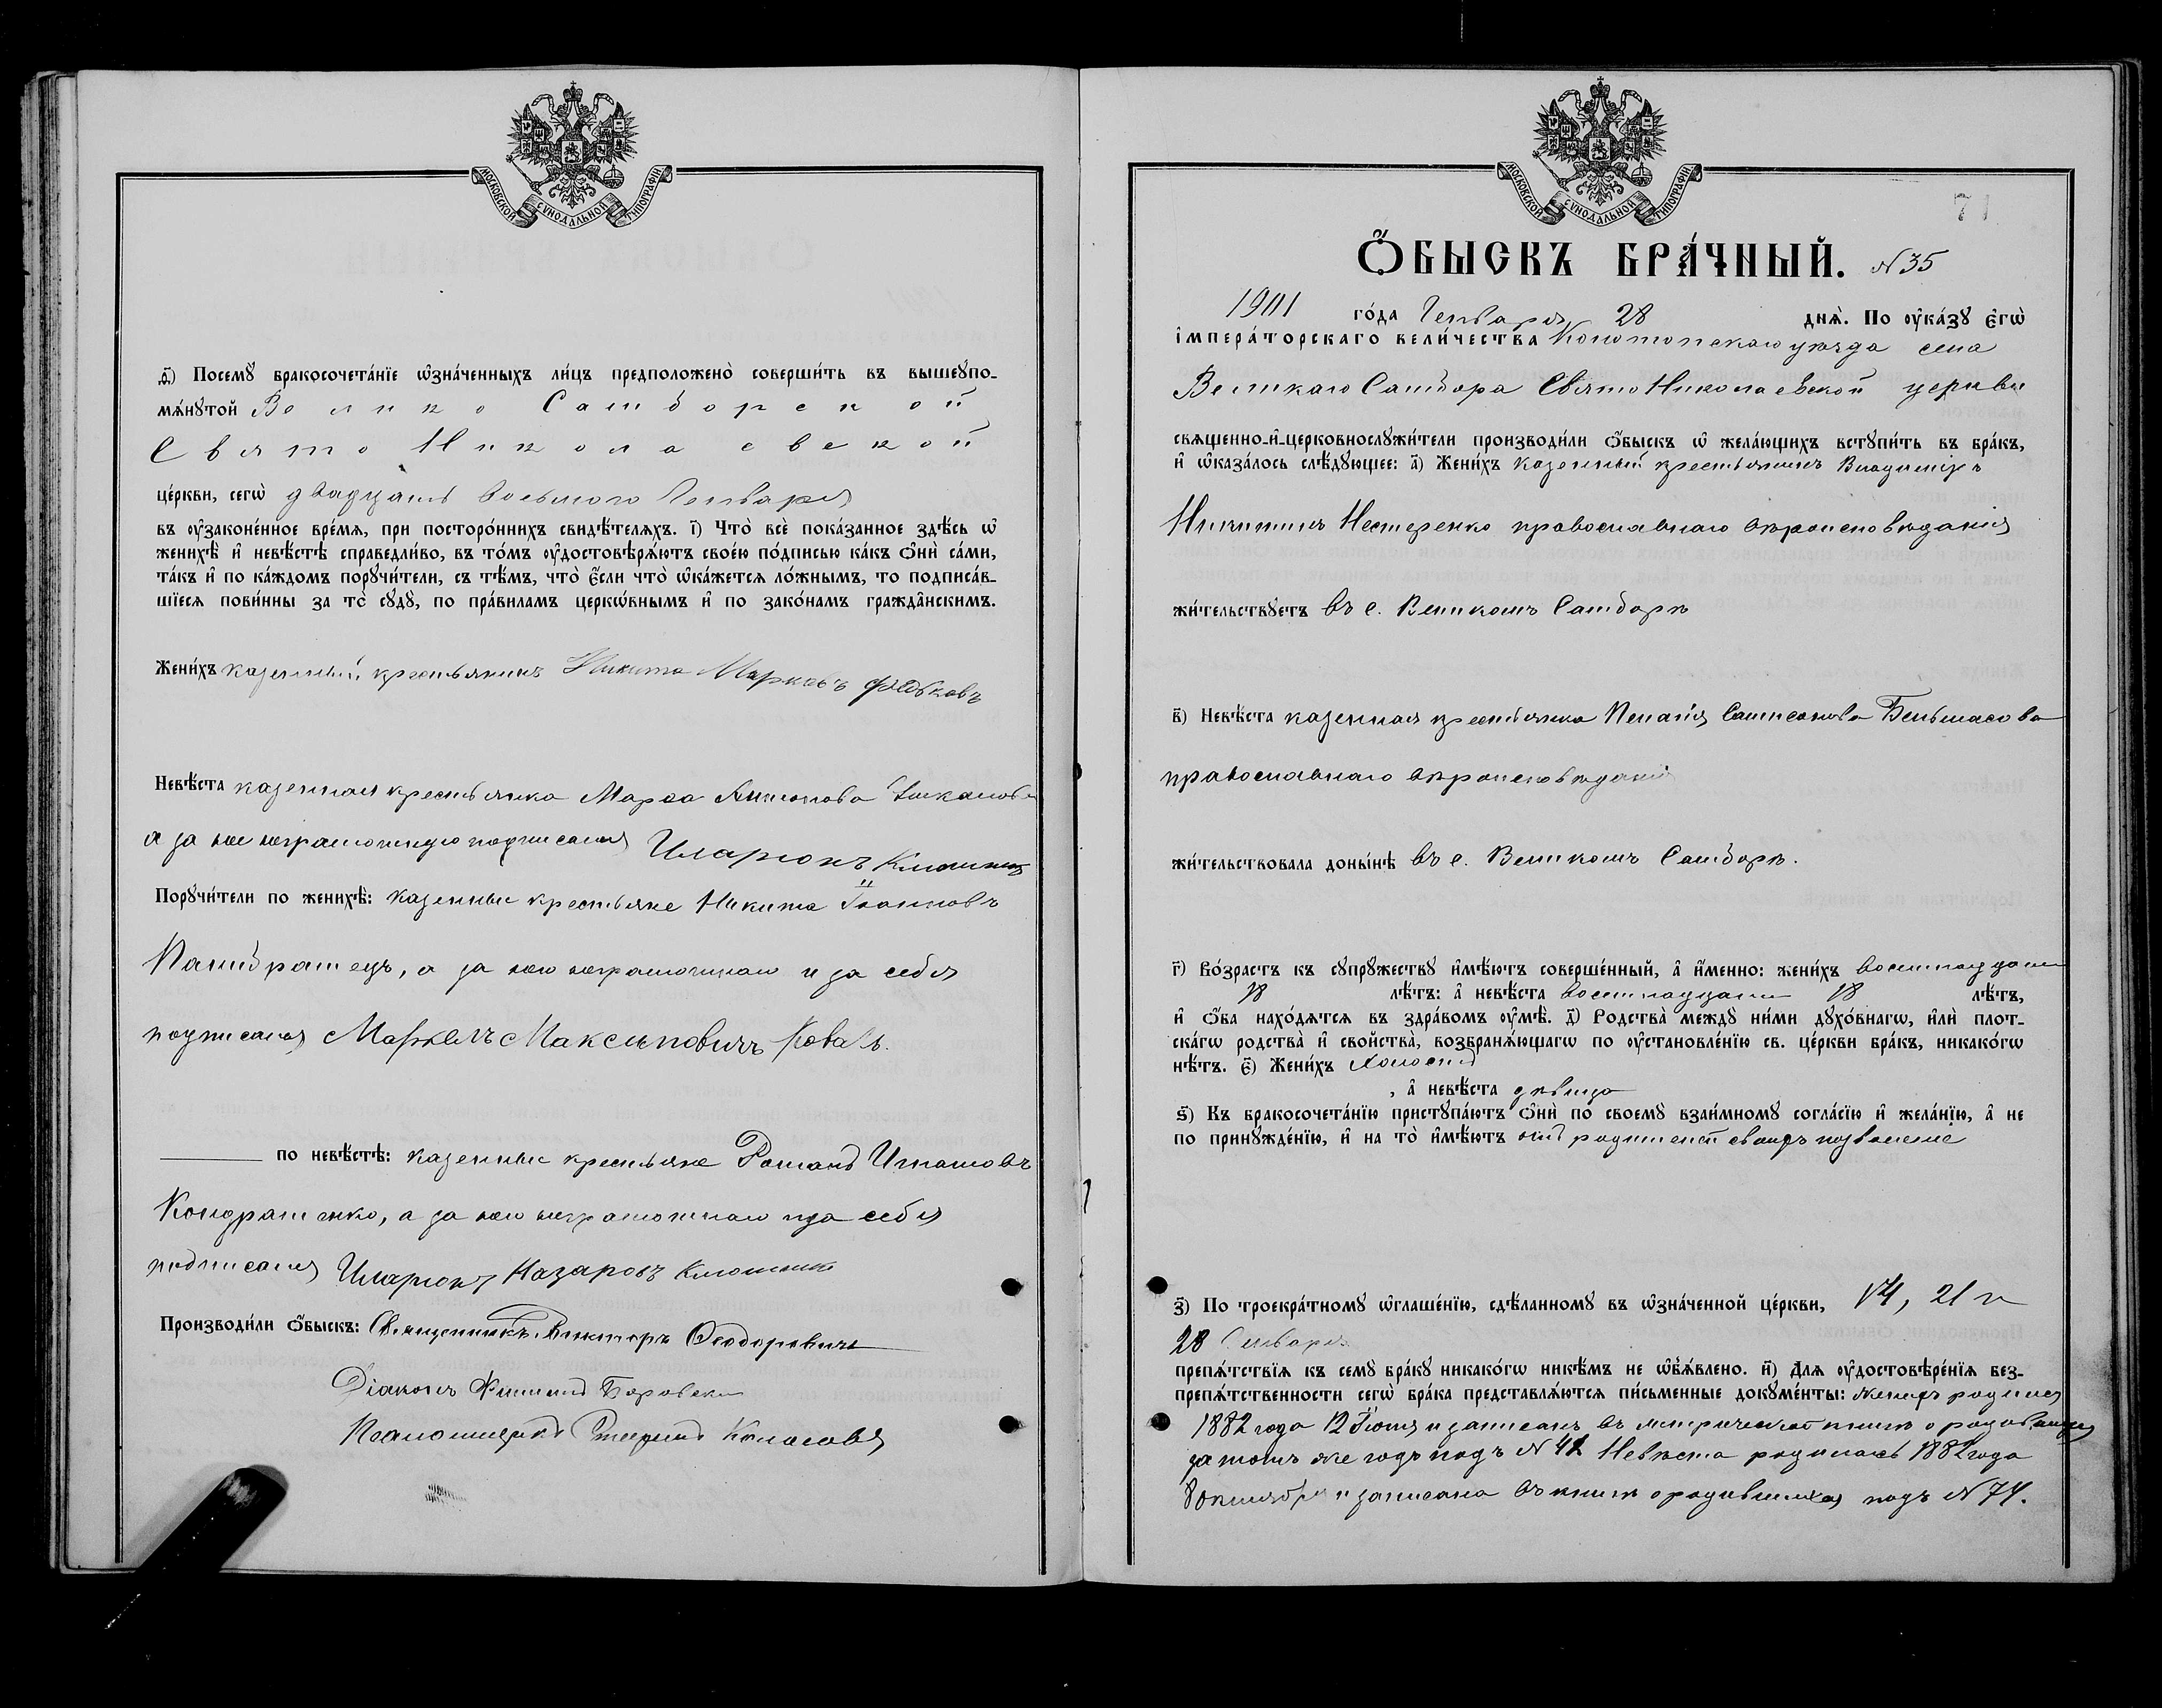 МОСКОВСКОЙ СУНОДАЛЬНОЙ ТИПОГРАФІИ
ѳ҃) Посемꙋ̀ бракосочета́нїе ѡ҆зна́ченныхъ ли́цъ предположено̀ соверши́ть въ вышеꙋпо-
мѧ́нꙋтой Велико Самборской
Свято Николаевской
це́ркви, сегѡ̀ двадцать восьмого Генваря
въ ᲂу҆законе́нное вре́мѧ, при посторо́ннихъ свидѣ́телѧхъ. і҃) Что̀ всѐ пока́занное здѣ́сь ѡ҆
женихѣ̀ и҆ невѣ́стѣ справедли́во, въ то́мъ ᲂу҆достовѣрѧ́ютъ свое́ю по́дписью ка́къ ѻ҆нѝ са́ми,
та́къ и҆ по ка́ждомъ порꙋчи́тели, съ тѣ́мъ, что̀ є҆́сли что̀ ѡ҆ка́жетсѧ ло́жнымъ, то подписа́в-
шїесѧ пови́нны за то̀ сꙋдꙋ̀, по пра́виламъ церкѡ́внымъ и҆ по зако́намъ гражда́нскимъ.
Жени́хъ казенный крестьянинъ Никита Марковъ Федьковъ
Невѣ́ста казенная крестьянка Марѳа Антонова
а за нее неграмотную подписался Иларіонъ Клюшникъ
Порꙋчи́тели по женихѣ̀: казенные крестьяне Никита Іоанновъ
а за него неграмотнаго и за себя
подписался Маркелъ Максимовичъ Коваль.
по невѣ́стѣ: казенные крестьяне Романъ Игнатовъ
Кондратенко, а за него неграмотнаго и за себя
подписался Иларіонъ Назаровъ Клюшникъ
Производи́ли ѻ҆́быскъ: Священникъ Викторъ Ѳеодоровичъ
Діаконъ Филиппъ Боровскій
Псаломщикъ Колосовъ
МОСКОВСКОЙ СУНОДАЛЬНОЙ ТИПОГРАФІИ
71
Ѻ҆́БЫСКЪ БРА́ЧНЫЙ. N 35
1901 го́да Генваря 28 днѧ̀. По ᲂу҆ка́зꙋ є҆гѡ̀
і҆мпера́торскаго вели́чества Конотопскаго уѣзда села
Великаго Самбора Свято Николаевской церкви
свѧщенно-и҆-церковнослꙋжи́тели производи́ли ѻ҆́быскъ ѡ҆ жела́ющихъ встꙋпи́ть въ бра́къ,
и҆ ѡ҆каза́лось слѣ́дꙋющее: а҃) Жени́хъ казенный крестьянинъ Владиміръ
Никитинъ Нестеренко православнаго вѣроисповѣданія
жи́тельствꙋетъ въ с. Великомъ Самборѣ
в҃) Невѣ́ста казенная крестьянка Пелагія Самсонова
православнаго вѣроисповѣданія
жи́тельствовала доны́нѣ въ с. Великомъ Самборѣ.
г҃) Во́зрастъ къ сꙋпрꙋ́жествꙋ и҆мѣ́ютъ соверше́нный, а҆ и҆́менно: жени́хъ восемнадцати
18 лѣ́тъ: а҆ невѣ́ста восемнадцати 18 лѣ́тъ,
и҆ ѻ҆́ба нахо́дѧтсѧ въ здра́вомъ ᲂу҆мѣ̀. д҃) Родства̀ междꙋ̀ ни́ми дꙋхо́внагѡ, и҆лѝ плот-
ска́гѡ родства̀ и҆ сво́йства̀, возбранѧ́ющагѡ по ᲂу҆становле́нїю св. це́ркви бра́къ, никако́гѡ
нѣ́тъ. є҃) Жени́хъ холостъ
, а҆ невѣ́ста дѣвица
ѕ҃) Къ бракосочета́нїю пристꙋпа́ютъ ѻ҆нѝ по своемꙋ̀ взаи́мномꙋ согла́сїю и҆ жела́нїю, а҆ не
по принꙋжде́нїю, и҆ на то̀ и҆мѣ́ютъ отъ родителей своихъ позволеніе
з҃) По троекра́тномꙋ ѡ҆глаше́нїю, сдѣ́ланномꙋ въ ѡ҆зна́ченной це́ркви, 14, 21 и
28 Генваря
препѧ́тствїѧ къ семꙋ̀ бра́кꙋ никако́гѡ никѣ́мъ не ѡ҆б̾ѧ́влено. и҃) Для ᲂу҆достовѣре́нїѧ без-
препѧ́тственности сегѡ̀ бра́ка представлѧ́ютсѧ пи́сьменные докꙋме́нты: Женихъ родился
1882 года 12 Іюля и записанъ въ метрической книгѣ о родившихся
за тотъ же годъ подъ N 42 Невѣста родилась 1882 года
8 октября и записана въ книгѣ о родившихся подъ N 74.